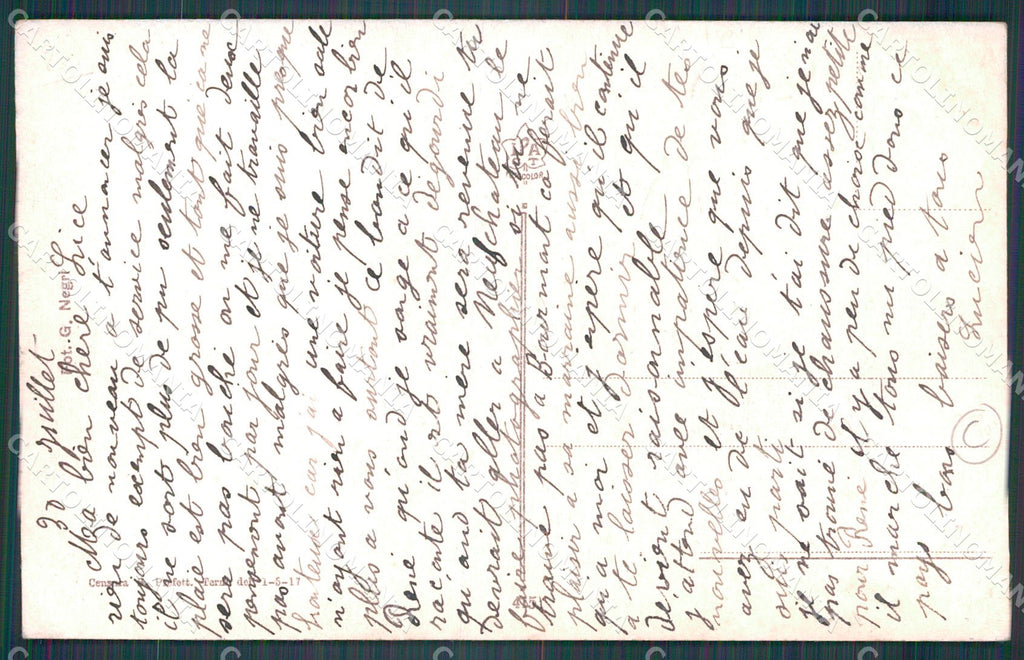 30 Juillet
Ma bien chère Lice
rien de nouveau à t'annoncer je suis
toujours exempt de service malgrés cela
il ne sort plus de pu seulement la
plaie est bien grasse et tout que ça ne
sera pas bouché on me fait deux
pansemont par jour et je ne travaille
pas avant malgrés que je suis presque
honteux car j'ai une voiture bien aide
n'ayant rien a faire je pense encor bien
plus a vous surtout ce bandit de
Rene qu'and je songe a ce qu'il
racante il est vraimont degourdi
qu'and ta mère sera revenue tu
devrait aller a Neufchateau le
faire photographier si tot ne
trauve pas a Bourmant ca ferait
plaisir a sa marraine aussi bien
qu'a moi et j'espere qu'il continue
a te laisser dormir et qu'il
dévient raisonnable
j'attend avec impatience de tes
nouvelles et j'éspère que vous
avez eu de l'éau depuis que je
suis parti
il me vait si je t'ai dit que je n'ai
pas trouvé de chaussures assez petite
pour René il y a peu de choix comme
il marche tous nu pied dans ce
pays bons baisers a tous
Lucien
Fot. G. Negri
Censura Prefett. Terni del 1-5-17
COLOR
©
CARTOLINOMANIA